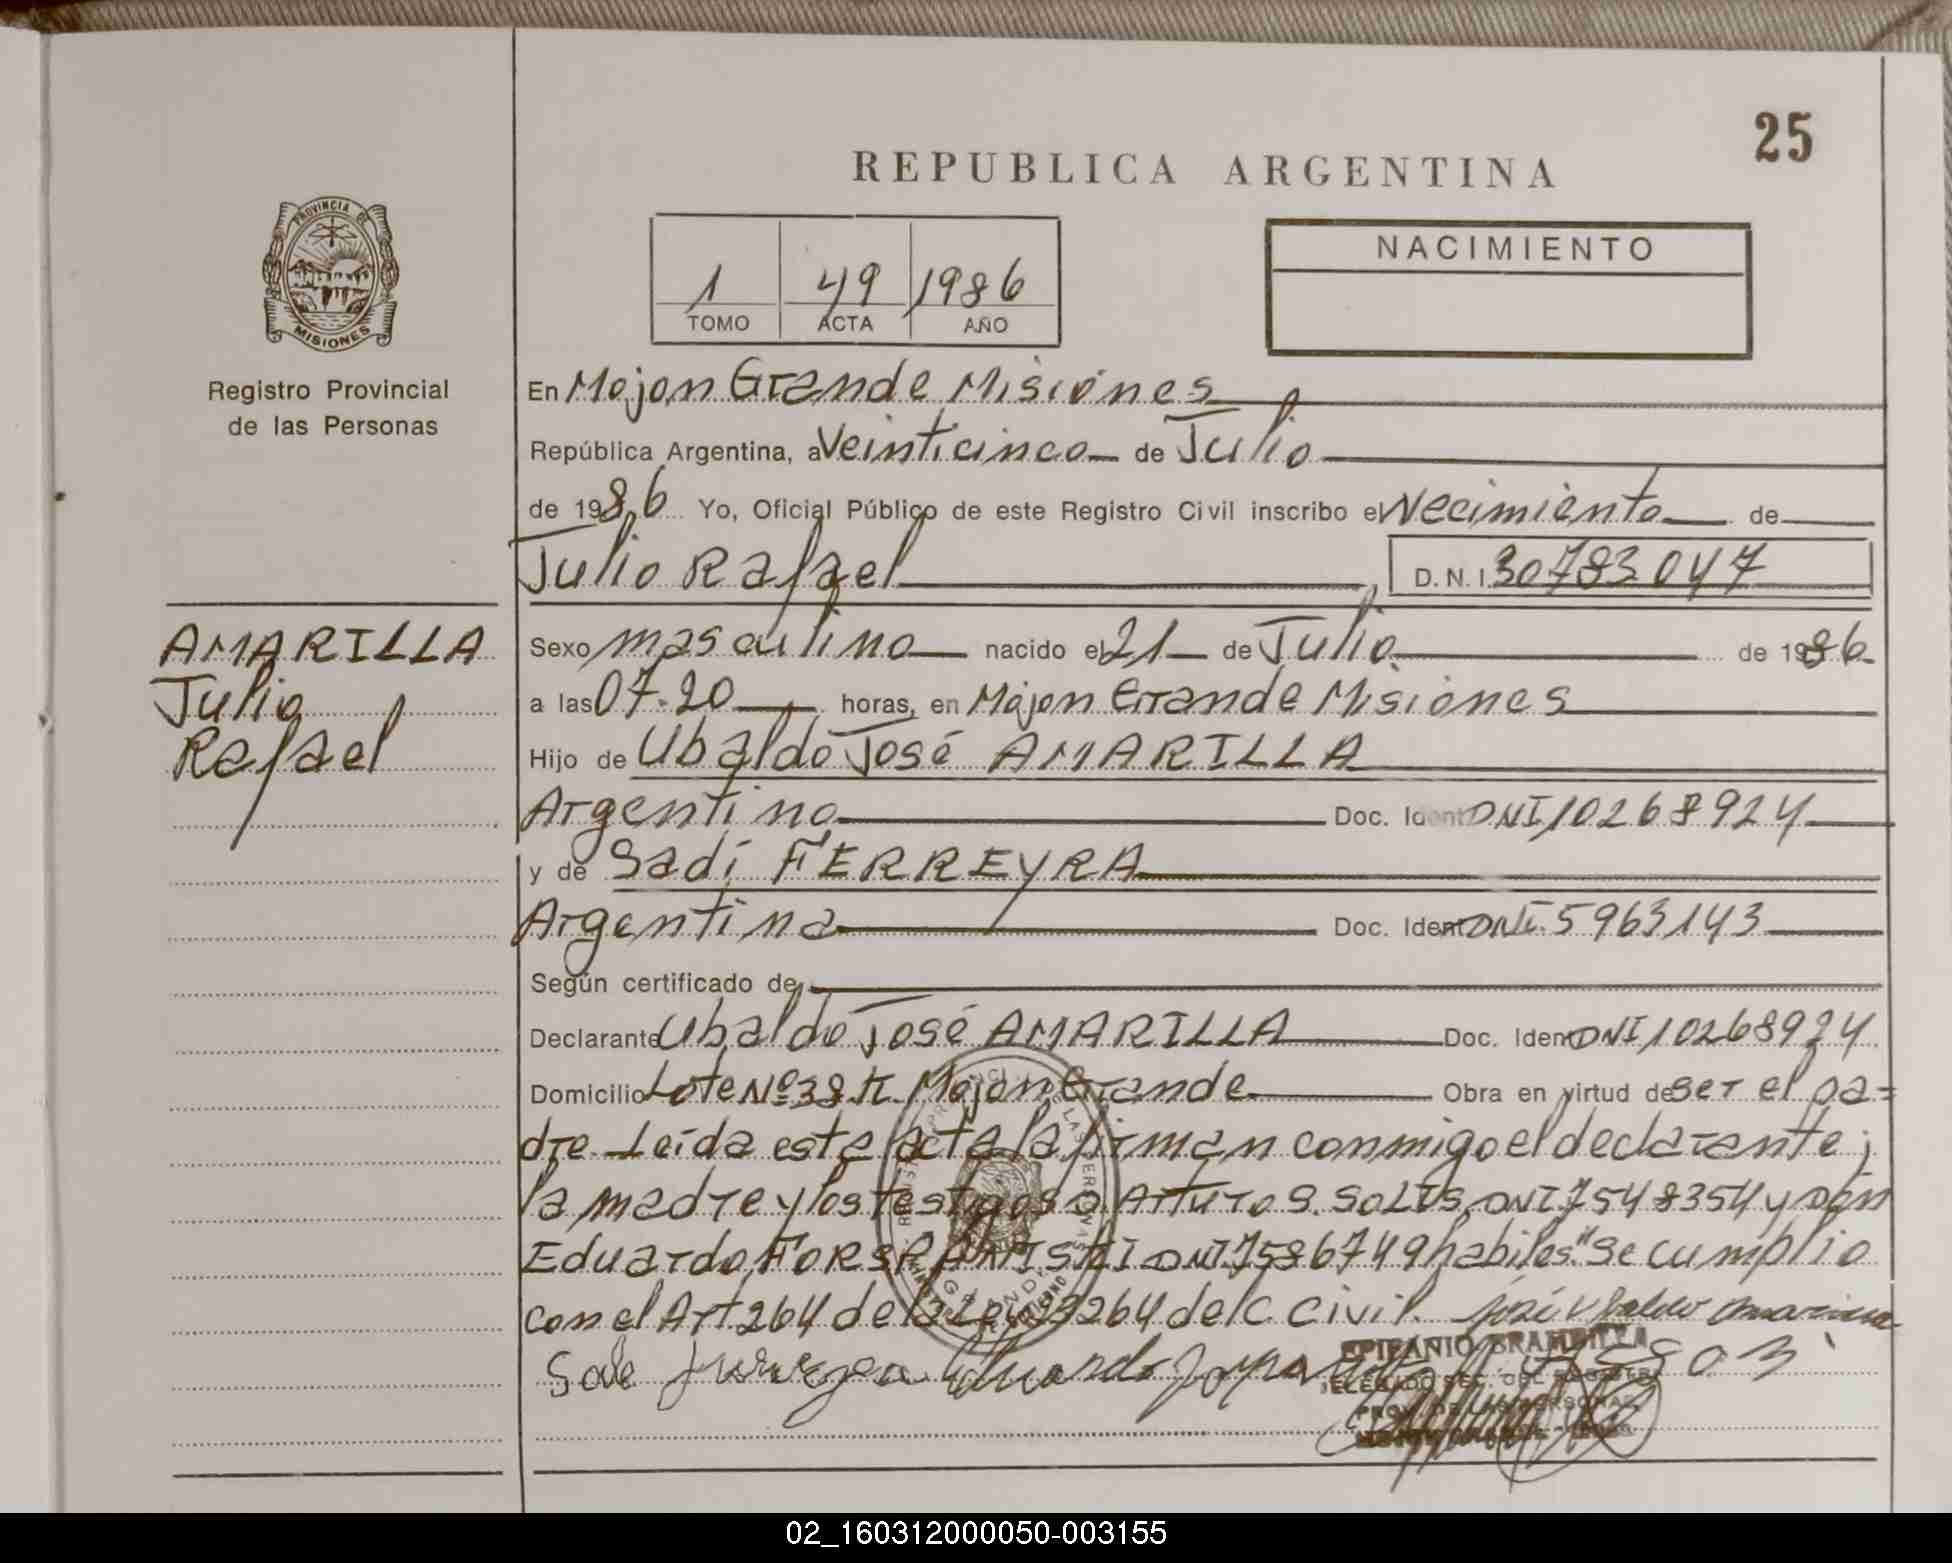 25
REPUBLICA ARGENTINA
PROVINCIA DE
MISIONES
Registro Provincial
de las Personas
1 49 1986
TOMO ACTA AÑO
NACIMIENTO
En Mojon Grande Misiones
República Argentina, a Veinticinco de Julio
de 1986 Yo, Oficial Público de este Registro Civil inscribo el Necimiento de
Julio Rafael D. N. I. 30783047
AMARILLA
Julio
Rafael
Sexo masculino nacido el 21 de Julio de 1986
a las 07.20 horas, en Mojon Grande Misiones
Hijo de Ubaldo José AMARILLA
Argentino Doc. Ident DNI 10268924
y de Sadi FERREYRA
Argentina Doc. Ident DNI. 5963143
Según certificado de
Declarante Ubaldo José AMARILLA Doc. Ident DNI 10268924
Domicilio Lote Nº 38 Mojon Grande Obra en virtud de ser el pa=
dre. Leída esta acta la firman conmigo el declarante;
la madre y los testigos D. Arturo S. SOLIS, DNI 7548354 y Don
Eduardo DNI. 7586749 habiles." Se cumplio
con el Art 264 de la Ley 23264 del C. Civil.
EPIFANIO BRAMBILLA
DELEGADO SEC. DEL REGISTRO
PROV. DE LAS PERSONAS
02_160312000050-003155